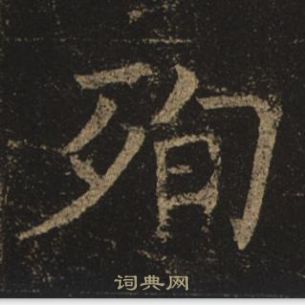 殉
词典网